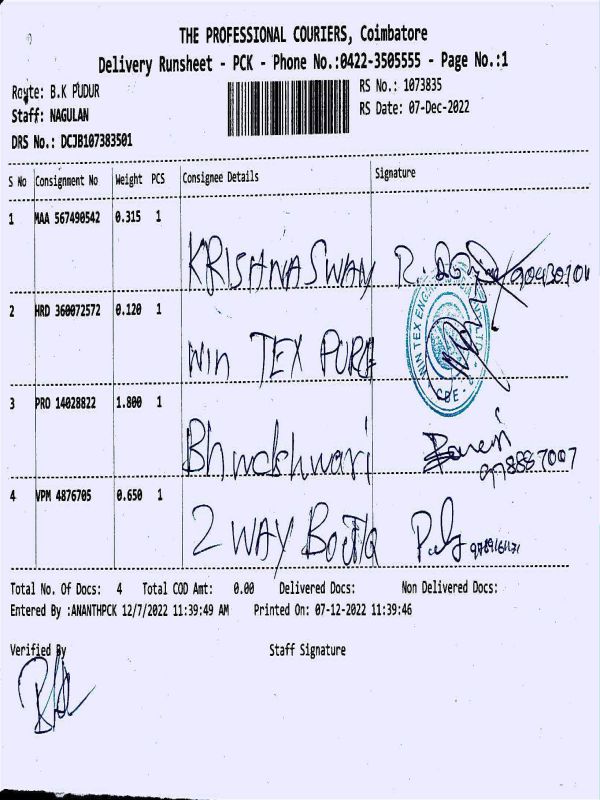 THE PROFESSIONAL COURIERS, Coimbatore
Delivery Runsheet - PCK - Phone No.:0422-3505555 - Page No.:1
Route: B.K PUDUR
RS No.: 1073835
Staff: NAGULAN
RS Date: 07-Dec-2022
DRS No.: DCJB107383501
S No Consignment No Weight PCS Consignee Details Signature
1 MAA 567490542 0.315 1
KRISHNA SWAY
2 HRD 360072572 0.120 1
WIN TEX
WIN TEX
CBE
3 PRO 14028822 1.800 1
4 VPM 4876705 0.650 1
2 WAY
Total No. Of Docs: 4 Total COD Amt: 0.00 Delivered Docs: Non Delivered Docs:
Entered By :ANANTHPCK 12/7/2022 11:39:49 AM Printed On: 07-12-2022 11:39:46
Verified By Staff Signature